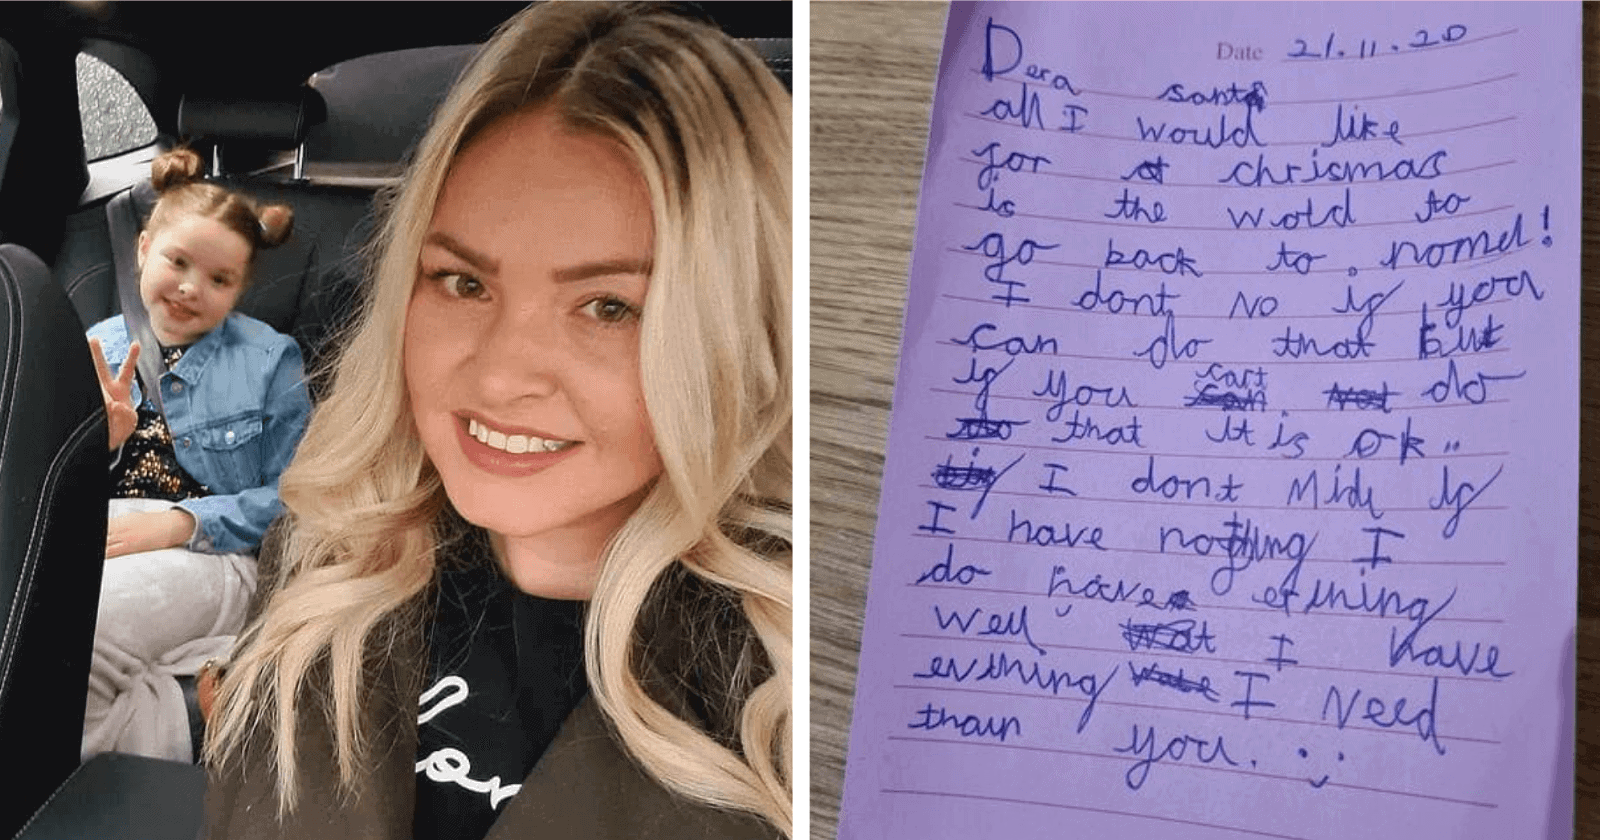 Date 21.11.20
Dera santa
all I would like
for chrismas
is the wold to
go back to nomel!
I dont no if you
can do that but
if you cart
do
that it is ok..
I dont Mide if
I have nothing I
do have erthing
well I have
evrthing I Need
than you. :)